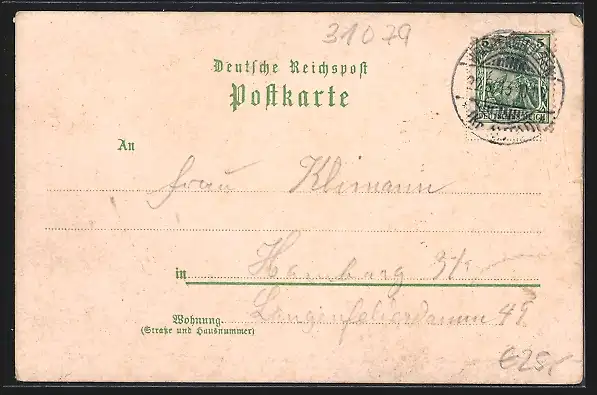 31079
Deutsche Reichspost
Postkarte
An
Frau Klimann
in Hamburg
Wohnung. Langenfelderdamm 49
(Straße und Hausnummer)
DEUTSCHES REICH
€25,-